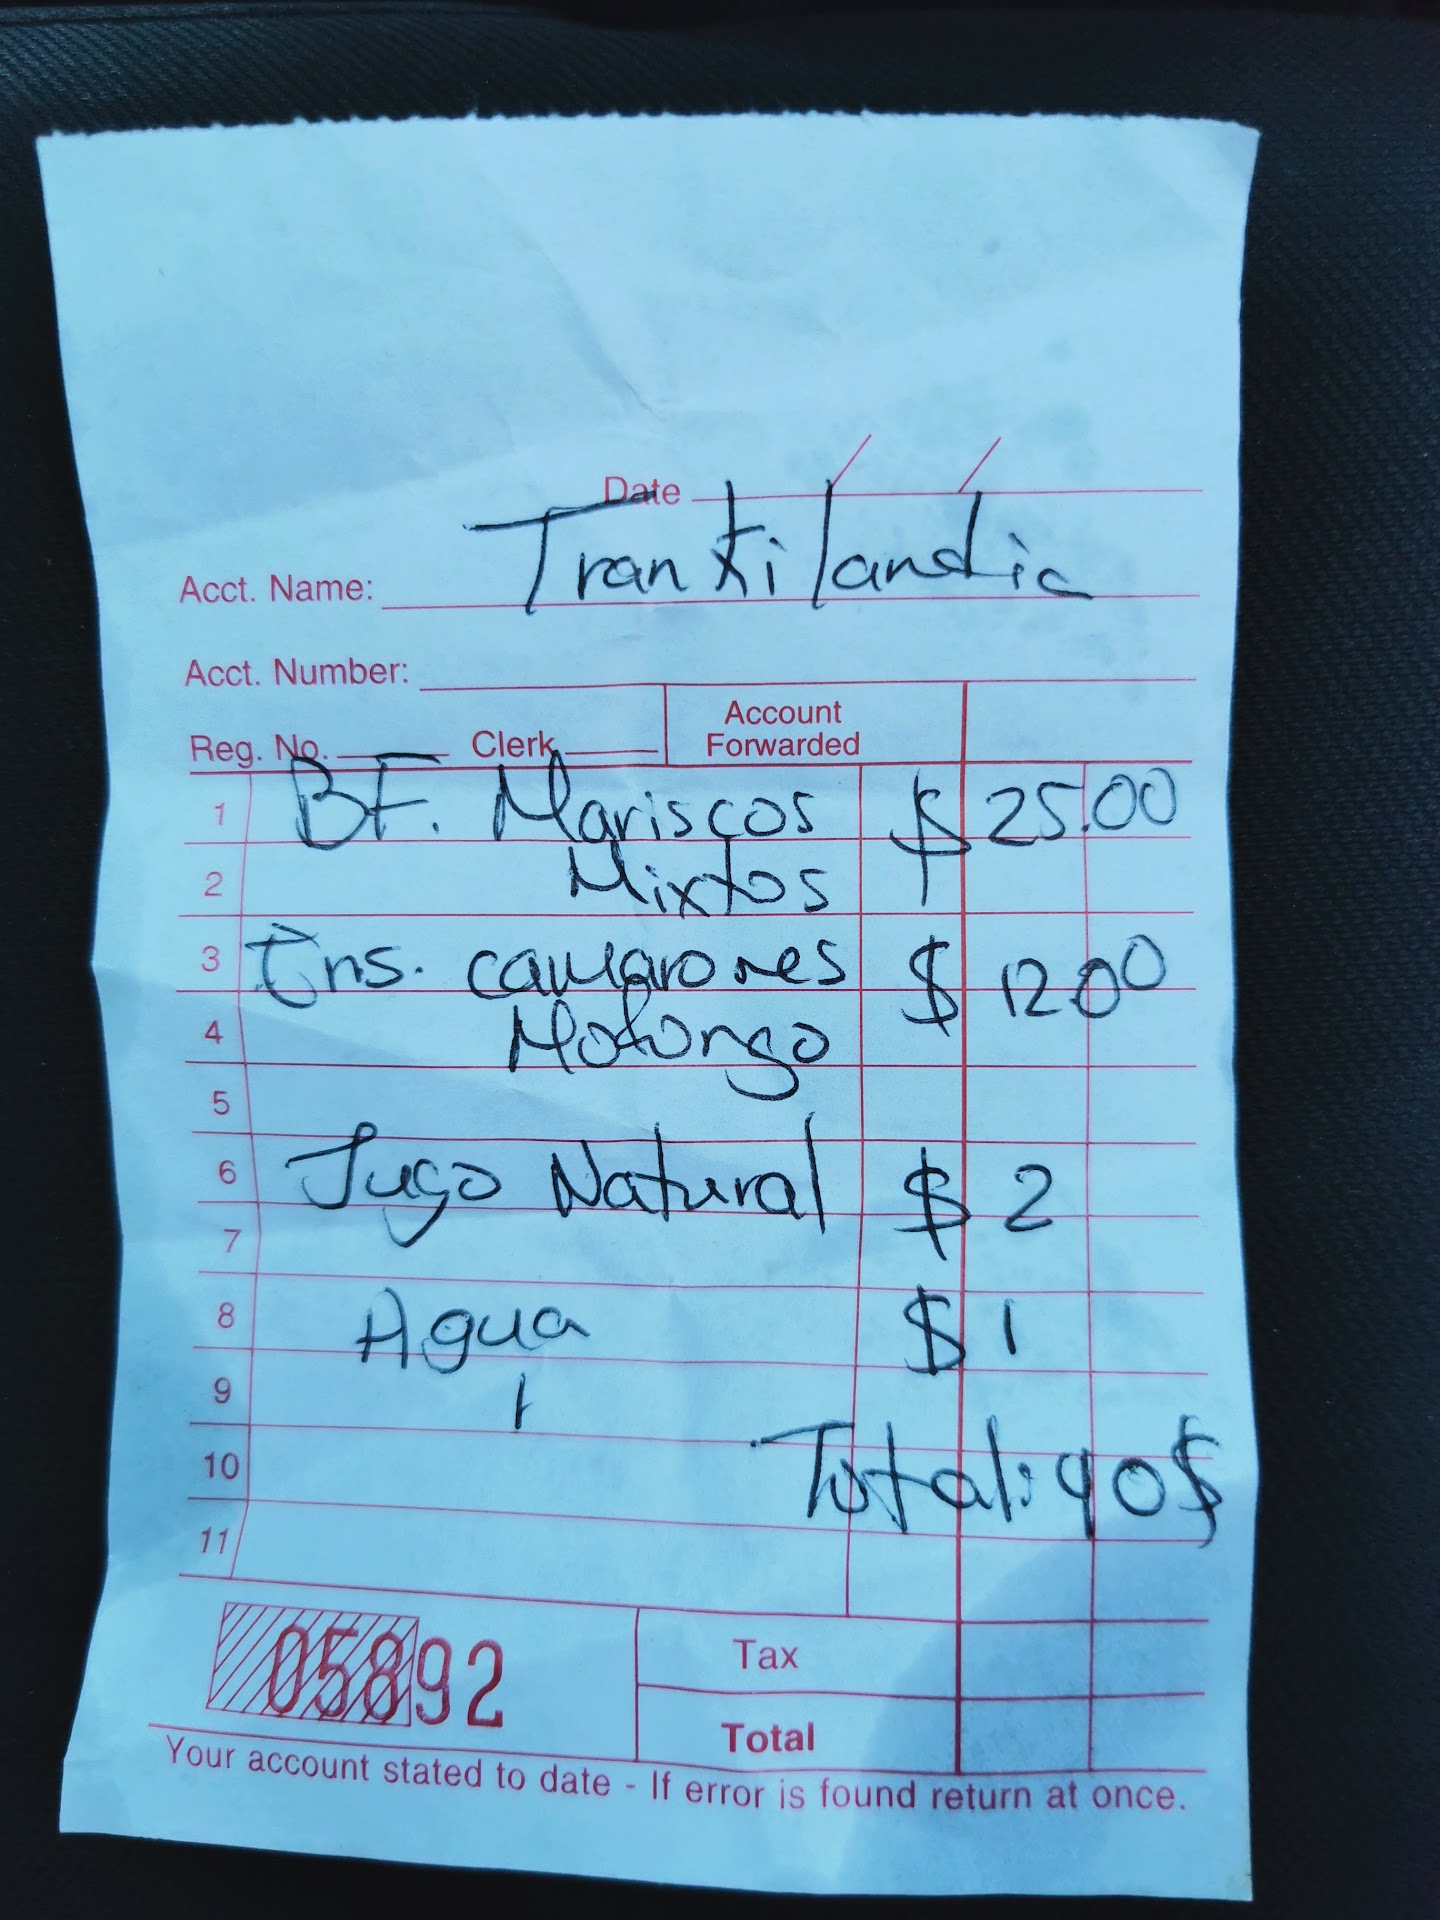 Date / /
Trankilandia
Acct. Name:
Acct. Number:
Reg. No. Clerk Account Forwarded
1 BF. Mariscos $ 25.00
2 Mixtos
3 Ens. camarones $ 12.00
4 Mofongo
5
6 Jugo Natural $ 2
7
8 Agua $ 1
9
10 Total: 40$
11
05892
Tax
Total
Your account stated to date - If error is found return at once.